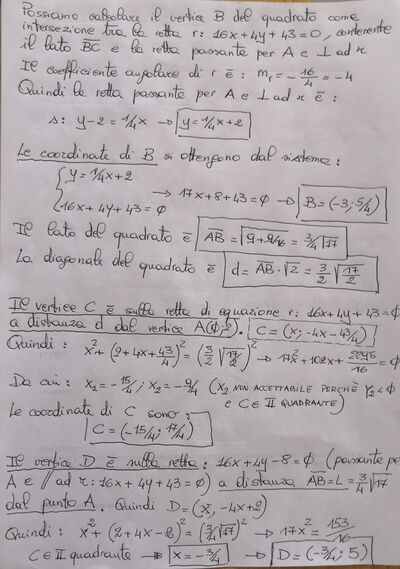 Possiamo calcolare il vertice B del quadrato come
intersezione tra la retta r: 16x+4y+43=0, contenente
il lato BC e la retta passante per A e ⊥ ad r
Il coefficiente angolare di r è: m_r = -16/4 = -4
Quindi la retta passante per A e ⊥ ad r è:
s: y-2=1/4x → y=1/4x+2
Le coordinate di B si ottengono dal sistema:
{ y=1/4x+2
16x+4y+43=0 → 17x+8+43=0 → B=(-3; 5/4)
Il lato del quadrato è AB=√(9+9/16)=3/4√17
La diagonale del quadrato è d=AB·√2=3/2√(17/2)
Il vertice C è sulla retta di equazione r: 16x+4y+43=0
a distanza d dal vertice A(0;2). C=(x; -4x-43/4)
Quindi: x²+(2+4x+43/4)²=(3/2√(17/2))² → 17x²+102x+2295/16=0
Da cui: x₁=-15/4; x₂=-9/4 (x₂ NON ACCETTABILE PERCHÈ y₂<0
e C∈II QUADRANTE)
Le coordinate di C sono:
C=(-15/4; 17/4)
Il vertice D è sulla retta: 16x+4y-8=0 (passante per
A e // ad r: 16x+4y+43=0) a distanza AB=L=3/4√17
dal punto A. Quindi D=(x, -4x+2)
Quindi: x²+(2+4x-2)²=(3/4√17)² → 17x²=153/16
C∈II quadrante → x=-3/4 → D=(-3/4; 5)